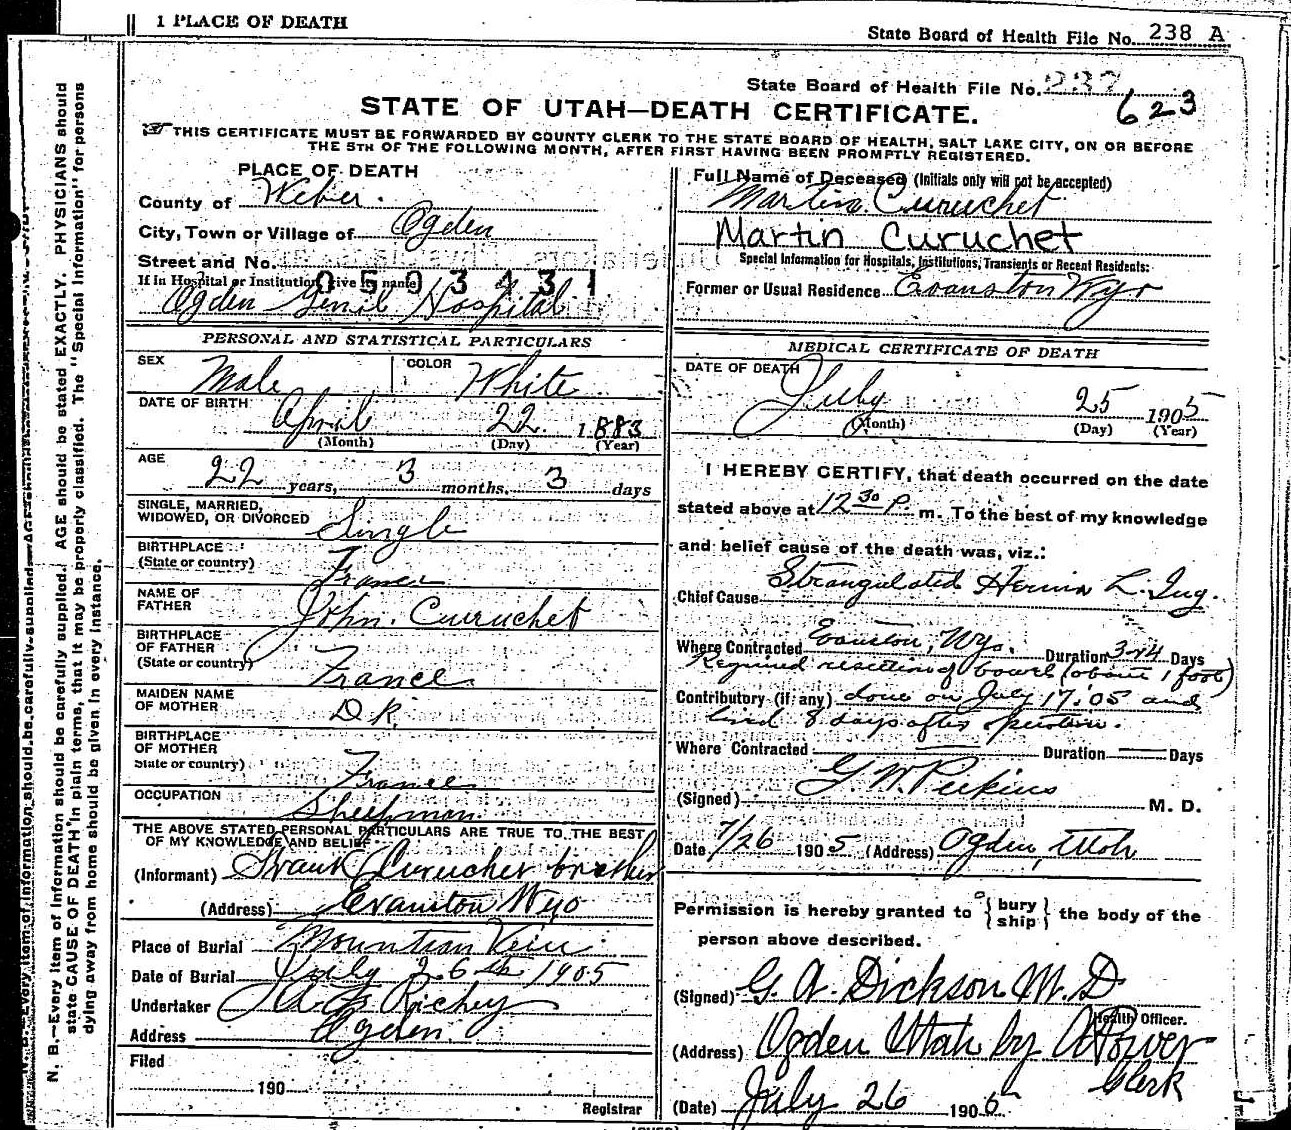 1 PLACE OF DEATH
State Board of Health File No. 238 A
State Board of Health File No. 237
623
STATE OF UTAH—DEATH CERTIFICATE.
THIS CERTIFICATE MUST BE FORWARDED BY COUNTY CLERK TO THE STATE BOARD OF HEALTH, SALT LAKE CITY, ON OR BEFORE
THE 5TH OF THE FOLLOWING MONTH, AFTER FIRST HAVING BEEN PROMPTLY REGISTERED.
PLACE OF DEATH
County of Weber.
City, Town or Village of Ogden
Street and No.
If in Hospital or Institution, give its name
0593431
Ogden Genil Hospital
PERSONAL AND STATISTICAL PARTICULARS
SEX Male COLOR White
DATE OF BIRTH April 22 1883
(Month) (Day) (Year)
AGE 22 years, 3 months, 3 days
SINGLE, MARRIED,
WIDOWED, OR DIVORCED Single
BIRTHPLACE
(State or country) France
NAME OF
FATHER John. Curuchet
BIRTHPLACE
OF FATHER
(State or country) France
MAIDEN NAME
OF MOTHER D.K.
BIRTHPLACE
OF MOTHER
State or country) France
OCCUPATION Sheepman
THE ABOVE STATED PERSONAL PARTICULARS ARE TRUE TO THE BEST
OF MY KNOWLEDGE AND BELIEF
(Informant) Curuchet brother
(Address) Evanston Wyo
Place of Burial Mountian View
Date of Burial July 26th 1905
Undertaker Richey
Address Ogden.
Filed
190
Registrar
Full Name of Deceased (Initials only will not be accepted)
Martin Curuchet
Martin Curuchet
Special Information for Hospitals, Institutions, Transients or Recent Residents:
Former or Usual Residence Evanston Wyo
MEDICAL CERTIFICATE OF DEATH
DATE OF DEATH
July 25 1905
(Month) (Day) (Year)
I HEREBY CERTIFY, that death occurred on the date
stated above at 12 30 P. m. To the best of my knowledge
and belief cause of the death was, viz.:
Chief Cause Strangulated Hernia L. Ing.
Where Contracted Evanston, Wyo. Duration 3 or 4 Days
Required resection of bowel (about 1 foot)
Contributory (if any) done on July 17.'05 and
lived 8 days after operation.
Where Contracted Duration Days
(Signed) G. W. Perkins M. D.
Date 7/26 1905 (Address) Ogden, Utah
Permission is hereby granted to { bury
ship } the body of the
person above described.
(Signed) G. A. Dickson M. D
Health Officer.
(Address) Ogden Utah by A Power
Clerk
(Date) July 26 190
N. B.—Every item of information should be carefully supplied. AGE should be stated EXACTLY. PHYSICIANS should
state CAUSE OF DEATH in plain terms, that it may be properly classified. The "Special Information" for persons
dying away from home should be given in every instance.